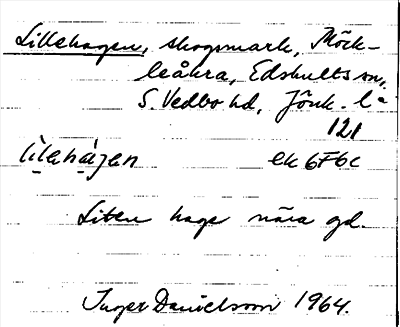 Lillehagen, skogsmark, Möck-
leåkra, Edshults sn,
S. Vedbo hd, Jönk. l:
121
lìlahá̱gen ek 6F6c
Liten hage nära gd.
Inger Danielsson 1964.